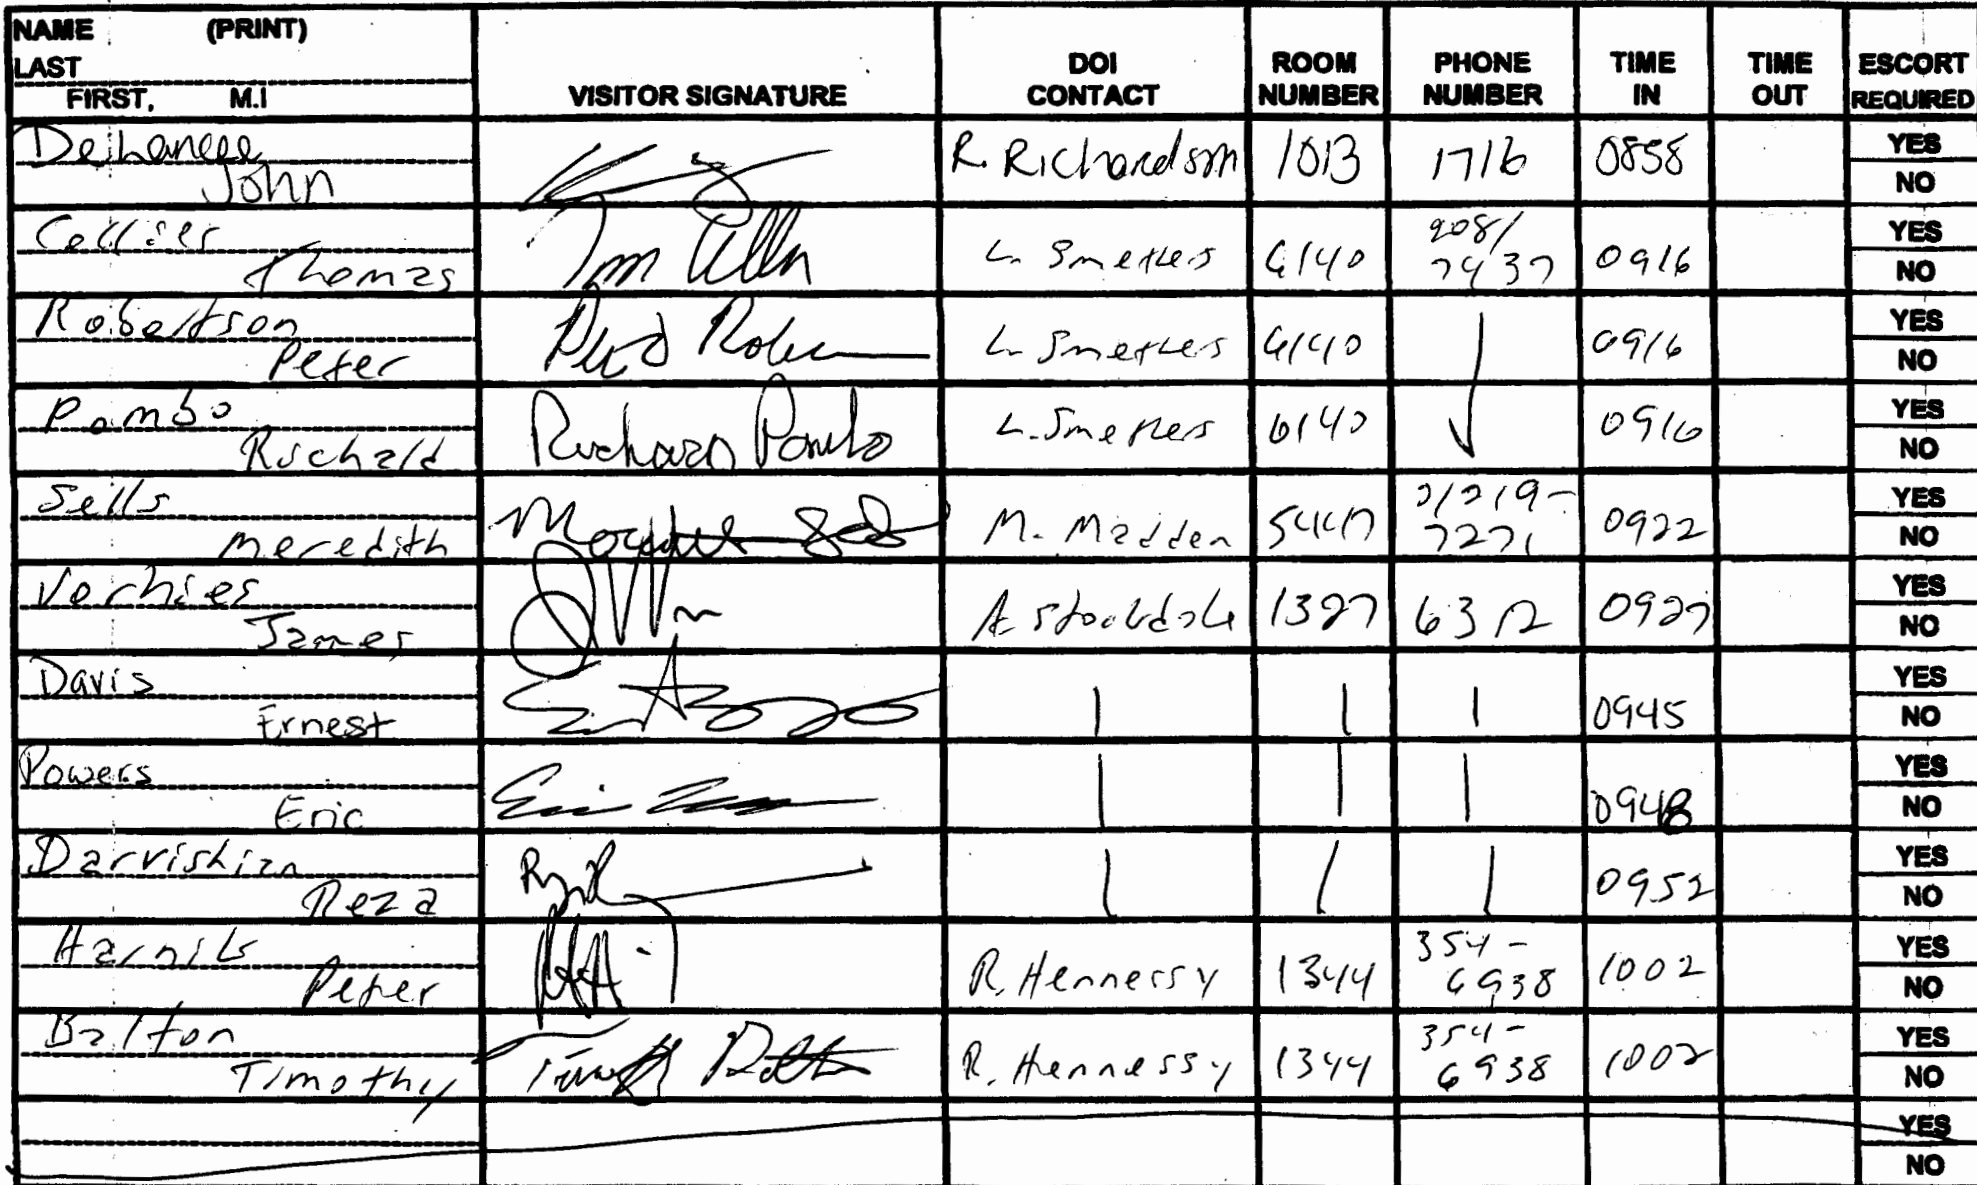 NAME (PRINT)
LAST
FIRST, M.I
VISITOR SIGNATURE
DOI CONTACT
ROOM NUMBER
PHONE NUMBER
TIME IN
TIME OUT
ESCORT REQUIRED
John R. Richardson 1013 1716 0858 YES NO
Thomas Tom 6140 908/ 7437 0916 YES NO
Robertson Peter L. Smethers 6140 0916 YES NO
Pombo Richard Richard Pombo L. Smethers 6140 0916 YES NO
Sells Meredith M. Madden 0922 YES NO
Vorhies James A. Stockdale 1327 6312 0927 YES NO
Davis Ernest | | | 0945 YES NO
Powers Eric Eric | | | 0948 YES NO
Darvishian Reza | | | 0952 YES NO
Peter R. Hennessy 1344 354- 6938 1002 YES NO
Timothy R. Hennessy 1344 354- 6938 1002 YES NO
YES NO